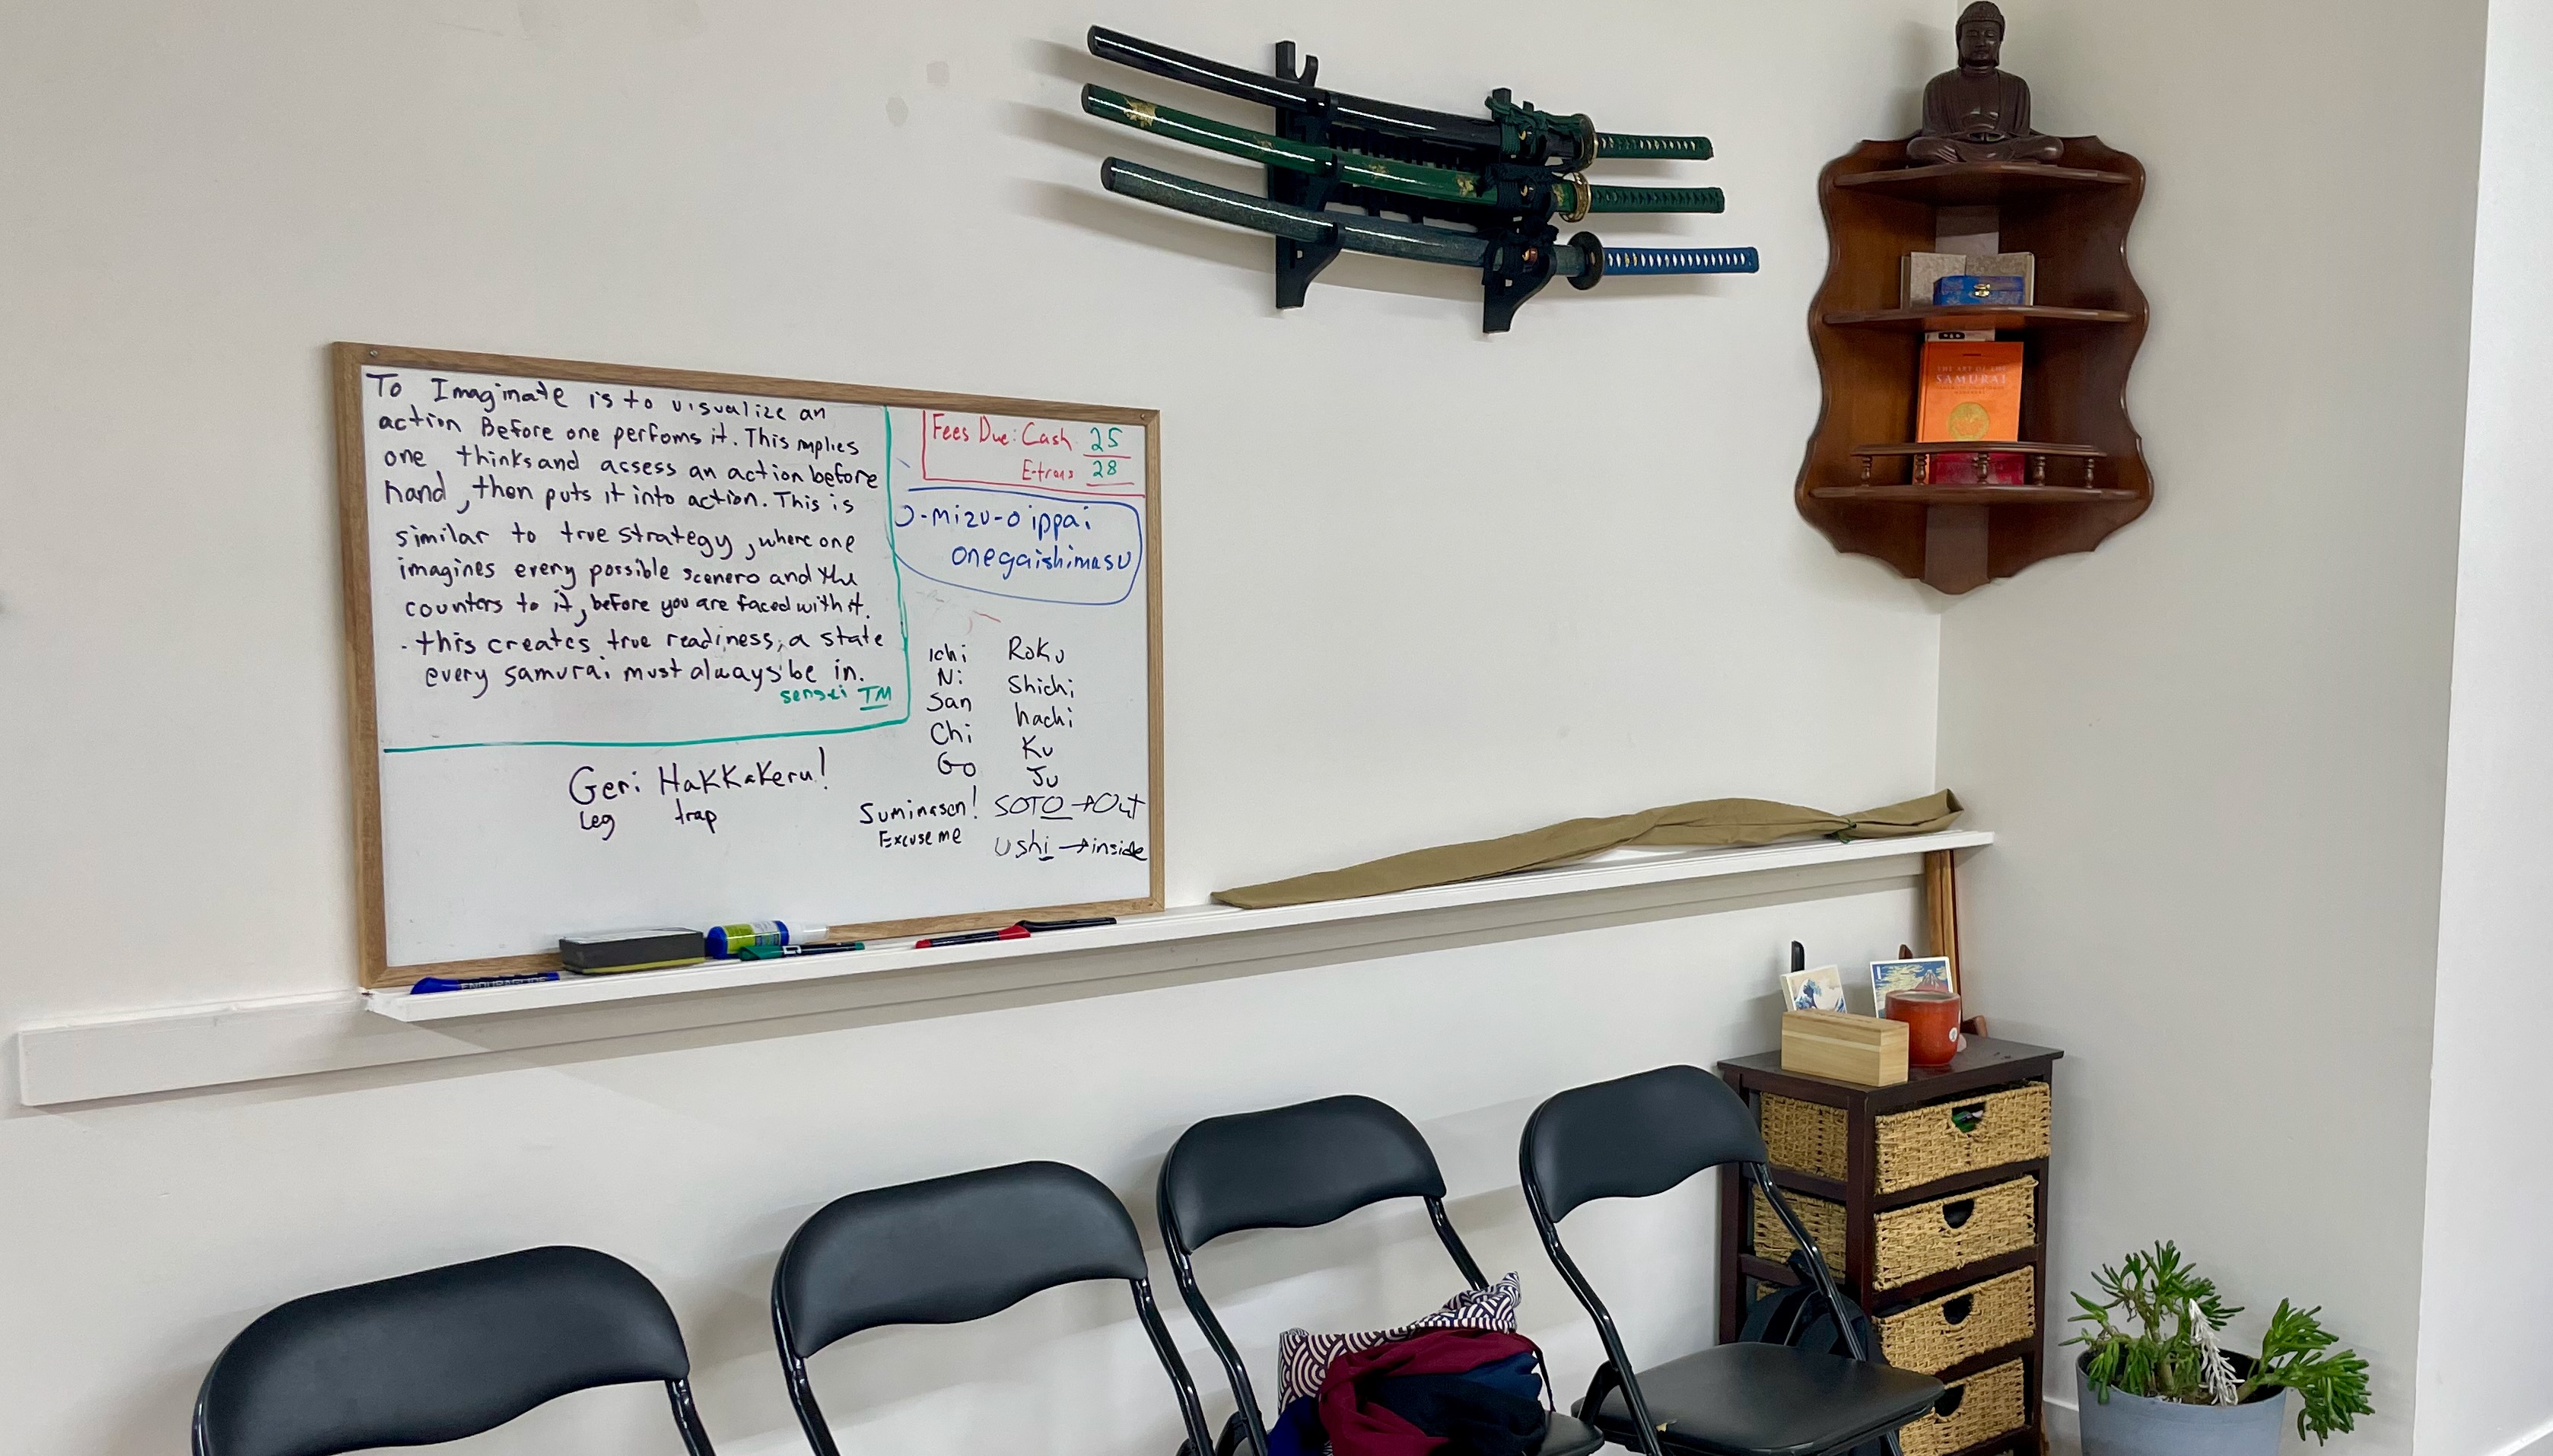 To Imaginate is to visualize an
action Before one perfoms it. This mplies
one, thinks and assess an action before
hand, then puts it into action. This is
similar to true strategy, where one
imagines every possible scenero and the
counters to it, before you are faced with it.
- this creates true readiness, a state
every samurai must always be in.
sensei TM
Fees Due: Cash 25
E-trans 28
O-mizu-o ippai
onegaishimasu
Ichi Roku
Ni Shichi
San hachi
Chi Ku
Go Ju
Geri Hakkakeru!
Leg trap
Suminasen!
Excuse me
SOTO → Out
Ushi → inside
THE ART OF THE
SAMURAI